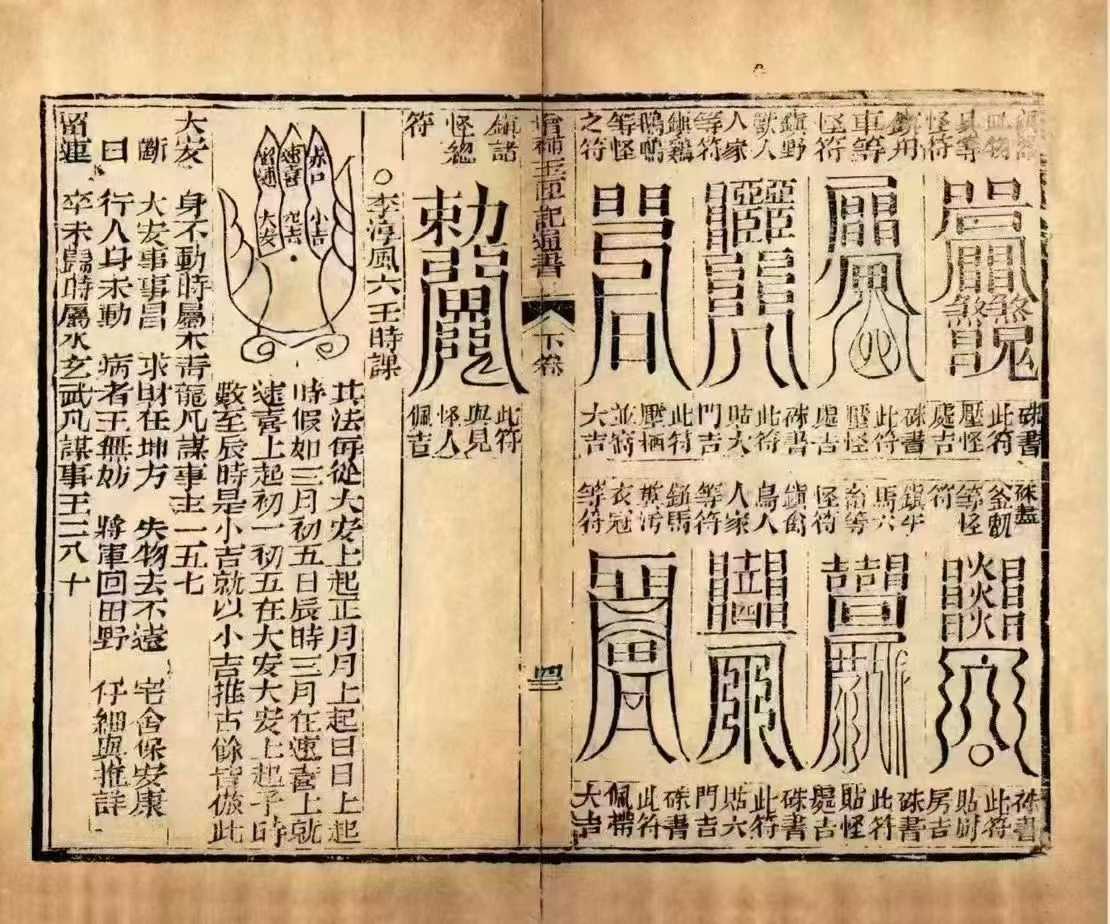 怪符
鎮舟
車等
怪符
鎮野
獸人
人家
等符
鎮鷄
鳴鳴
等怪
之符
硃書
此符
壓怪
處吉
硃書
此符
壓怪
處吉
硃書
此符
貼大
門吉
此符
壓栖
並窩
大吉
釜甑
等怪
符
鎮牛
馬六
畜等
怪符
鎮禽
鳥人
人家
等符
鎮馬
糞污
衣冠
等符
硃書
此符
貼厨
房吉
硃書
此符
貼怪
處吉
硃書
此符
貼六
門吉
硃書
此符
佩帶
大吉
增補玉匣記通書
下卷
四二
鎮諸
怪總
符
勅
此符
與見
怪人
佩吉
○李淳風六壬時課
其法每從大安上起正月月上起日日上起
時假如三月初五日辰時三月在速喜上就
速喜上起初一初五在大安大安上起子時
數至辰時是小吉就以小吉推占餘皆倣此
赤口
速喜
留連
小吉
空亡
大安
大安 身不動時屬木青龍凡謀事主一五七
斷 大安事事昌 求財在坤方 失物去不遠 宅舍保安康
曰 行人身未動 病者主無妨 將軍回田野 仔細與推詳
留連 卒未歸時屬水玄武凡謀事主二八十